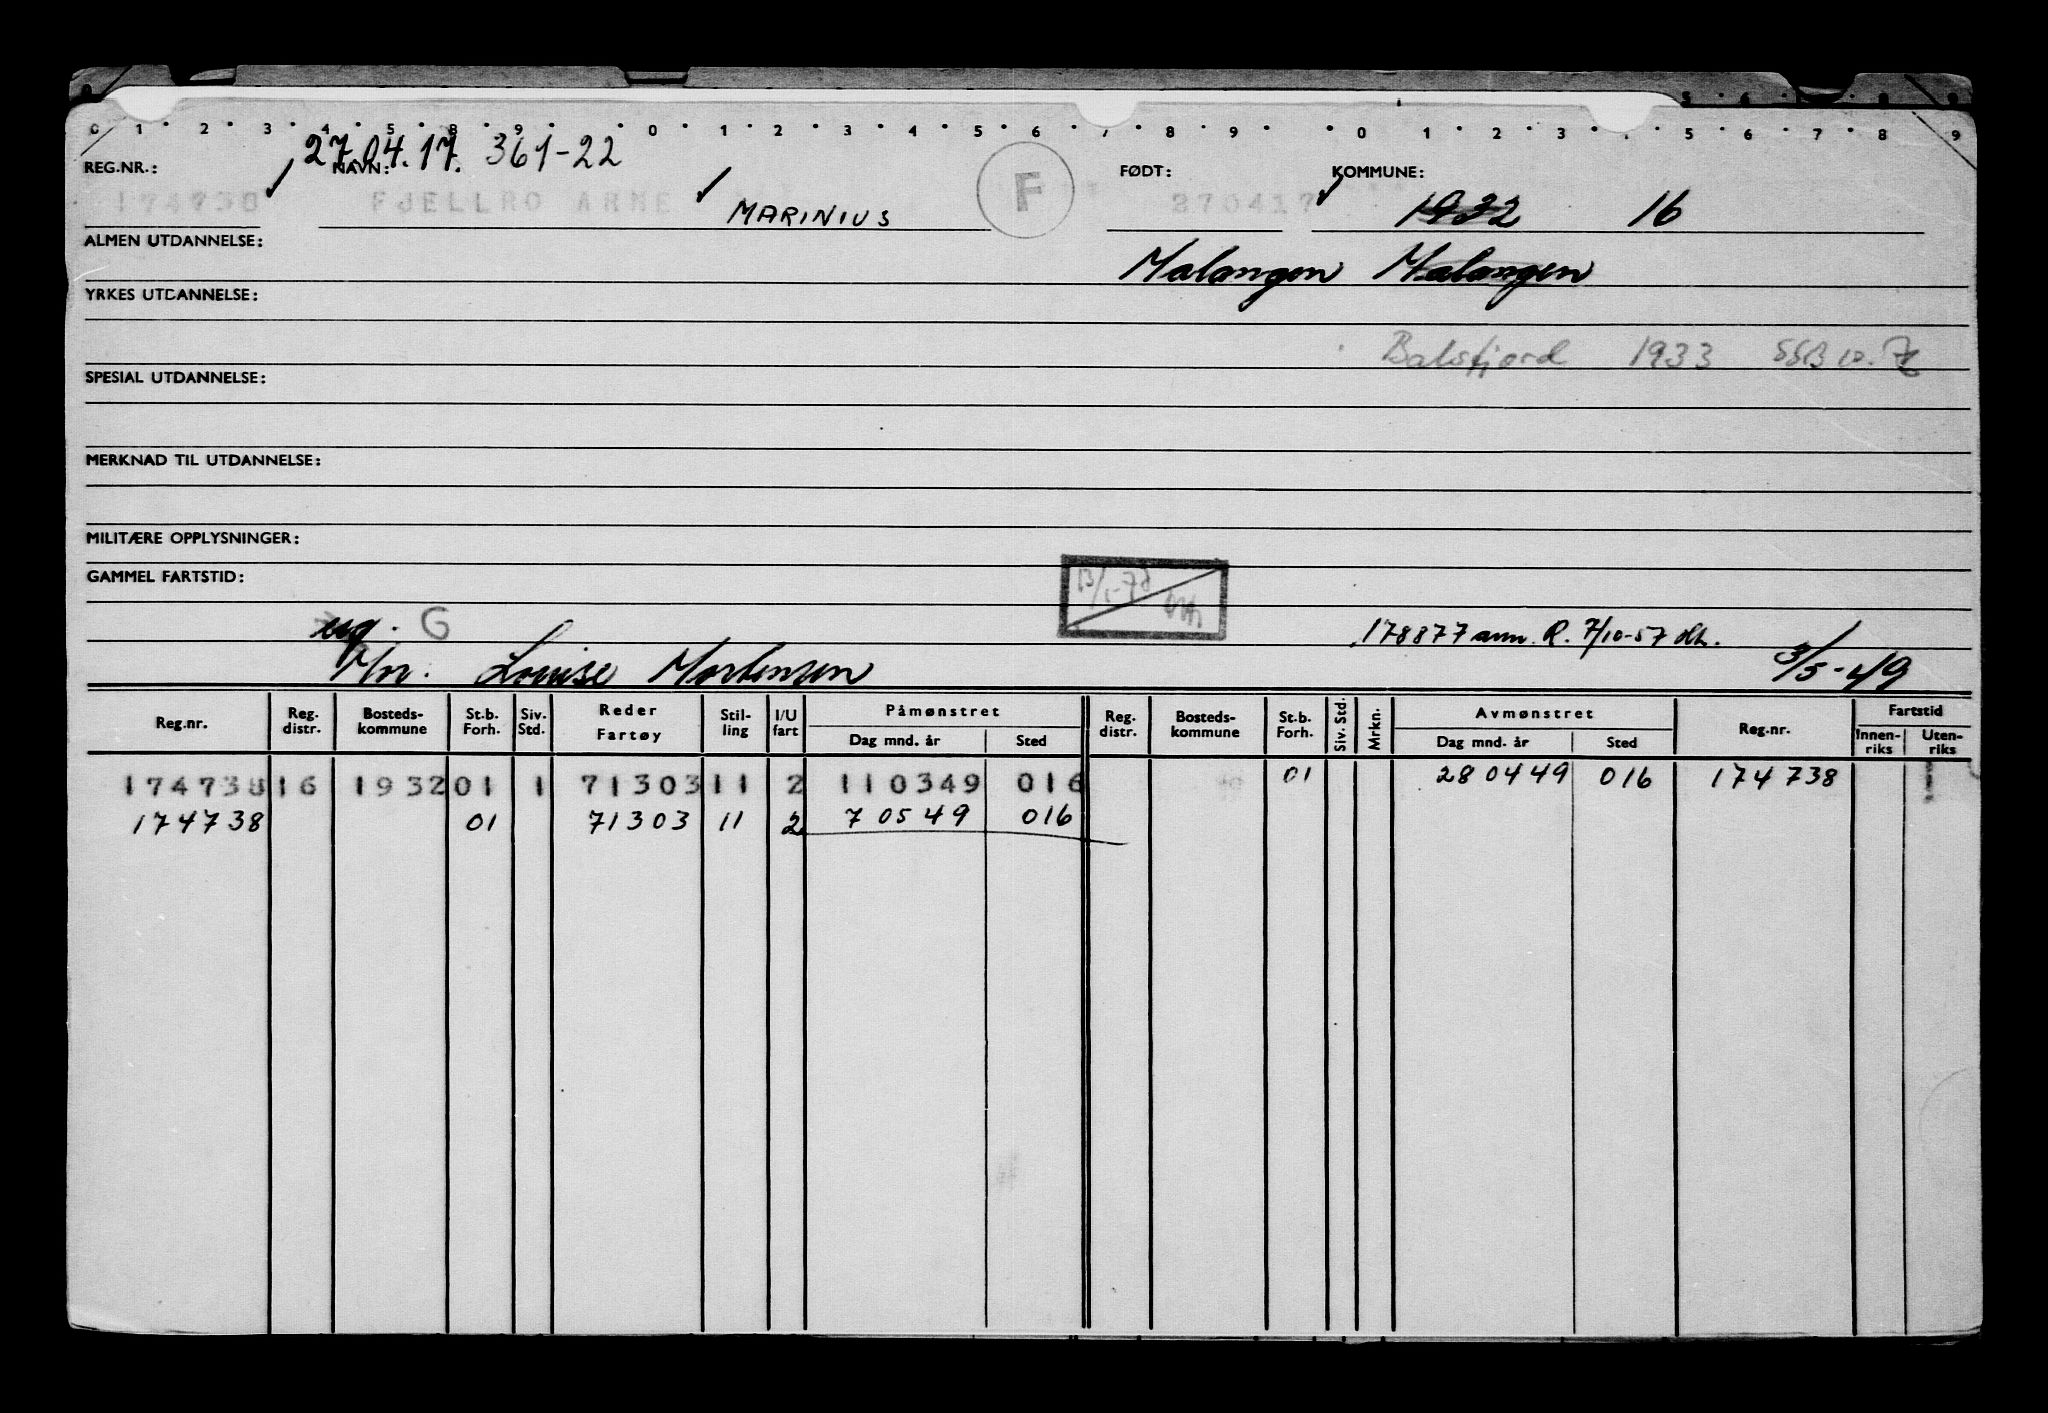 5 6 8 9
0 1 2 3 4 5 8 9 0 1 2 3 4 5 6 7 8 9 0 1 2 3 5 6 7 8 9
27.04.17. 361-22
REG.NR.: NAVN: F FØDT: KOMMUNE:
174738 FJELLRO ARNE MARINIUS 270417 1932 16
ALMEN UTDANNELSE:
Malangen Malangen
YRKES UTDANNELSE:
Balsfjord 1933
SPESIAL UTDANNELSE:
MERKNAD TIL UTDANNELSE:
MILITÆRE OPPLYSNINGER:
GAMMEL FARTSTID:
ug. G
178877 ann. R. 7/10-57
Mor. Louise Mortensen 3/5-49
Reg.nr. Reg. distr. Bosteds-kommune St.b. Forh. Siv. Std. Reder Fartøy Stil-ling I/U fart Påmønstret Dag mnd. år Sted Reg. distr. Bosteds-kommune St.b. Forh. Siv. Std. Mrkn. Avmønstret Dag mnd. år Sted Reg.nr. Fartstid Innen-riks Uten-riks
174738 16 1932 01 1 71303 11 2 110349 016 01 280449 016 174738
174738 01 71303 11 2 70549 016